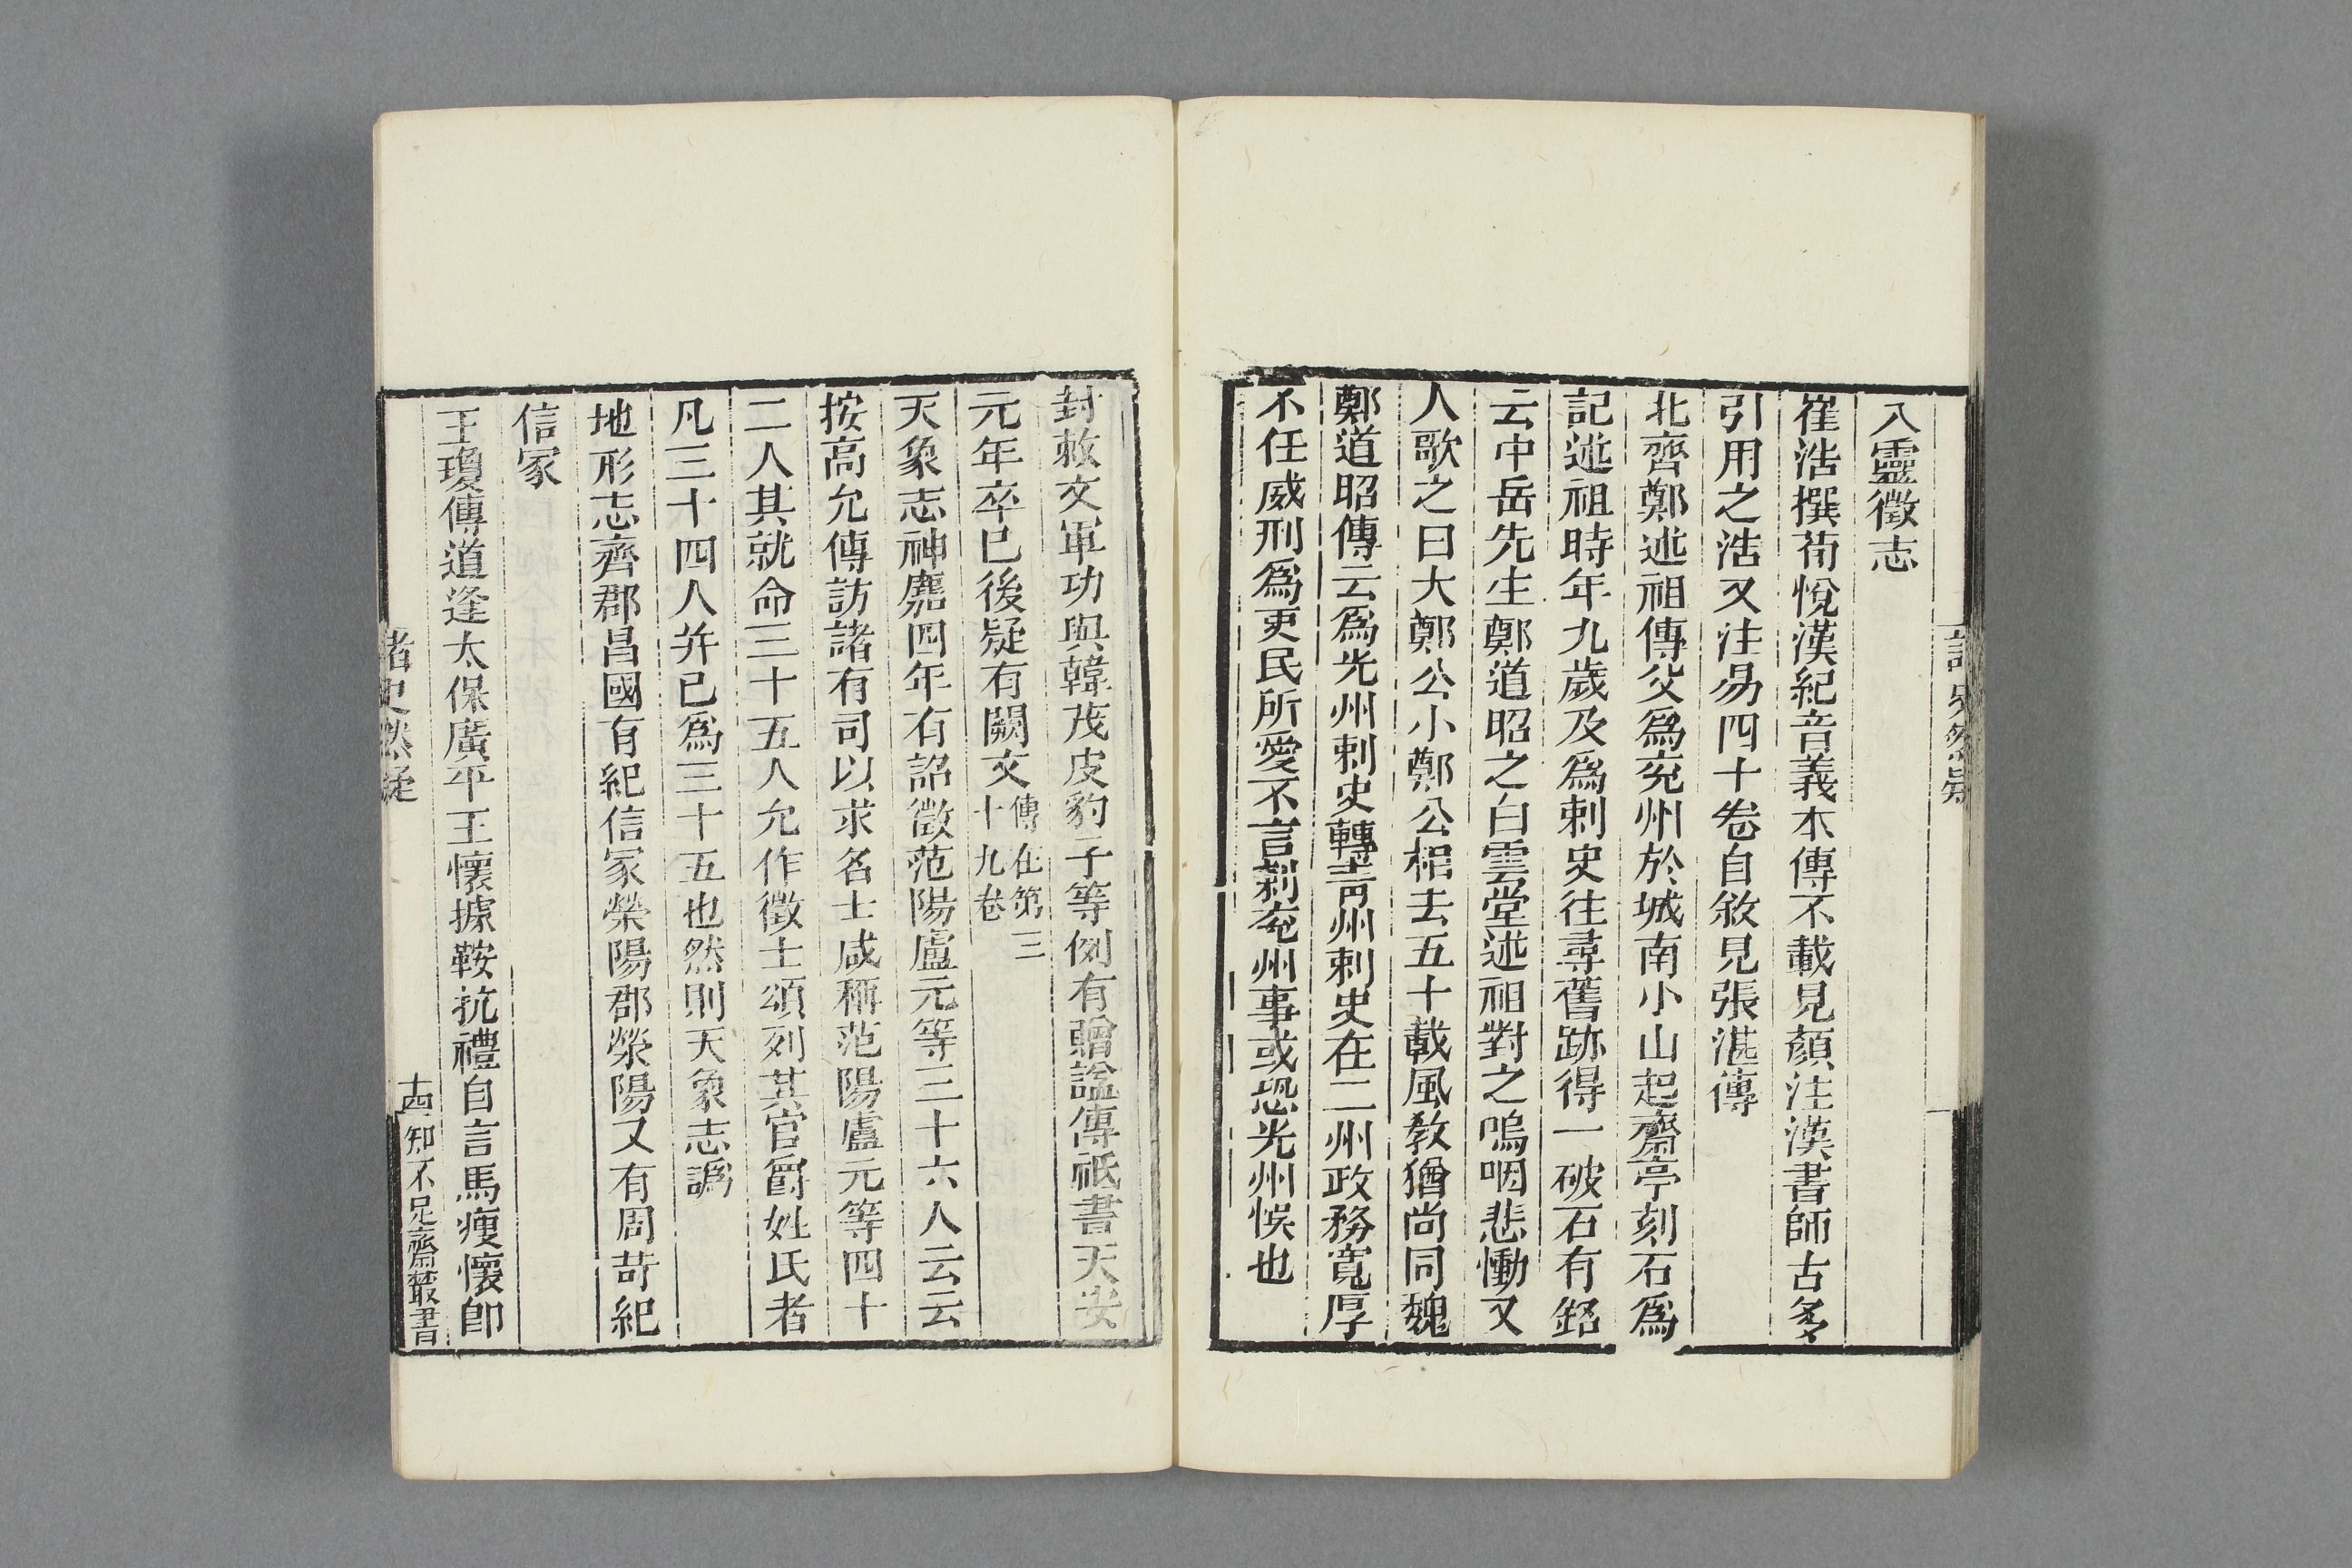 入靈徵志
崔浩撰荀悅漢紀音義本傳不載見顏注漢書師古多
引用之浩又注易四十卷自敘見張湛傳
北齊鄭述祖傳父爲兗州於城南小山起齋亭刻石爲
記述祖時年九歲及爲刺史往尋舊跡得一破石有銘
云中岳先生鄭道昭之白雲堂述祖對之嗚咽悲慟又
人歌之曰大鄭公小鄭公相去五十載風敎猶尚同魏
鄭道昭傳云爲光州刺史轉青州刺史在二州政務寬厚
不任威刑爲吏民所愛不言刺兗州事或恐光州悞也
諸史然疑
封敕文軍功與韓茂皮豹子等例有贈諡傳祇書天安
元年卒已後疑有闕文傳在第三十九卷
天象志神䴥四年有詔徵范陽盧元等三十六人云云
按高允傳訪諸有司以求名士咸稱范陽盧元等四十
二人其就命三十五人允作徵士頌列其官爵姓氏者
凡三十四人并已爲三十五也然則天象志譌
地形志齊郡昌國有紀信冢滎陽郡滎陽又有周苛紀
信冢
王瓊傳道逢太保廣平王懷據鞍抗禮自言馬瘦懷卽
諸史然疑
十四
知不足齋叢書